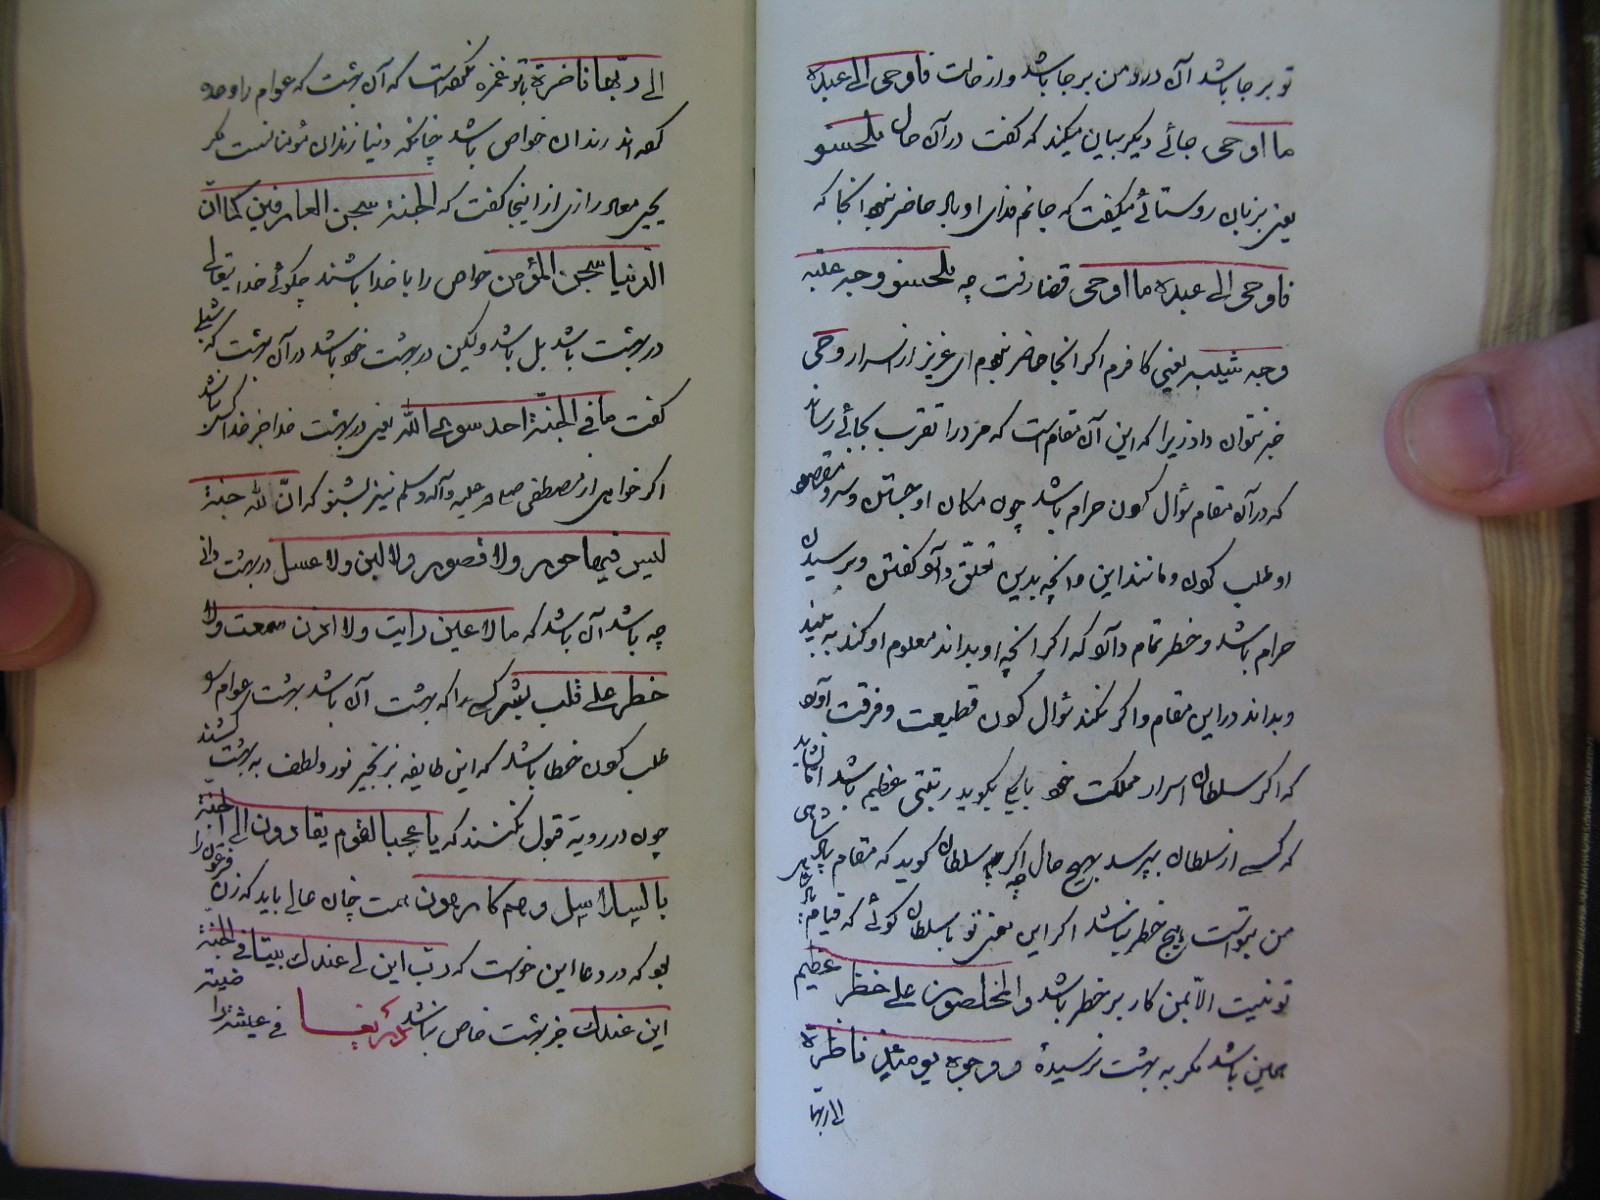 تو بر جا باشد آن درد من بر جا باشد و از خلت فاوحی الی عبده
ما اوحی جائے دیکر بیان میکند که کفت در آن حال بلحسنو
یعنی بزبان روستائے میکفت که جانم فدای او باد حاضر نبود انجا که
فاوحی الی عبده ما اوحی قضا رفت چه بلحسنو وجه عتبه
وجه شیبه یعنی کافرم اکر انجا حاضر نبودم ای عزیز از اسرار وحی
خبر نتوان داد زیرا که این آن مقام است که مرد را تقرب بجائے رساند
که در آن مقام سؤال کردن حرام باشد چون مکان او جستن و سر و مقصود
او طلب کردن و مانند این و انچه بدین تعلق دارد کفتن و پرسیدن
حرام باشد و خطر تمام دارد که اکر انچه او بداند معلوم او کند به بیند
و بداند در این مقام و اکر نکند سؤال کردن قطیعت و فرقت آورد
که اکر سلطان اسرار مملکت خود با کسی بکوید رتبتی عظیم باشد اما نشاید
که کسے از سلطان بپرسد بهیچ حال اکر چه سلطان کوید که مقام پادشاهی
من بتوست هیچ خطر نباشد اکر این معنی تو با سلطان کوئے که قیام
تو نیست الا بمن کار بر خطر باشد و المخلصون علی خطر عظیم
همین باشد مکر به بهشت نرسیدهٔ و وجوه یومئذ ناظرة
الی ربها
الی ربها ناضرة با تو غمزه نکفه است که آن بهشت که عوام را وعده
کرده اند زندان خواص باشد چنانکه دنیا زندان مؤمنانست مکر
یحیی معاذ رازی از اینجا کفت که الجنة سجن العارفین کما ان
الدنیا سجن المؤمن خواص را با خدا باشند چکوئے خدایتعالی
در بهشت باشد بل باشد ولیکن در بهشت خود باشد در آن بهشت که شبلی
کفت ما فی الجنة احد سوی الله یعنی در بهشت خدا جز خدا کس نباشد
اکر خواهی از مصطفی صلی الله علیه و آله وسلم نیز بشنو که ان لله جنة
لیس فیها حور ولا قصور ولا لبن ولا عسل در بهشت دانی
چه باشد آن باشد که ما لا عین رایت ولا اذن سمعت ولا
خطر علی قلب بشر کسے را که بهشت آن باشد بهشت عوام او
طلب کردن خطا باشد که این طایفه بزنجیر نور و لطف به بهشت کشند
چون در رویة قبول نکنند که یا عجبا لقوم یقادون الی الجنة
بالسلاسل وهم کارهون همت چنان عالے باید که زن فرعون را
بود که در دعا این خواست که رب ابن لے عندك بیتا فی الجنة
این عندك جز بهشت خاص نباشد فی عیشة راضیة